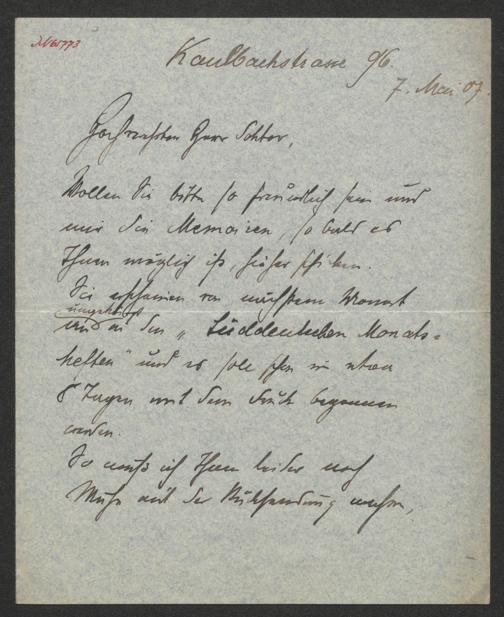 Kaulbachstrasse 96.
7. Mai 07.
Hochverehrter Herr Doktor,
Wollen Sie bitte so freundlich sein und
mir die Memoiren, so bald es
Ihnen möglich ist, hieher schiken.
Sie erscheinen von nächstem Monat
in den „Süddeutschen Monats=
heften“ und es soll schon in etwa
8 Tagen mit dem Druk begonnen
werden.
So muß ich Ihnen leider noch
Mühe mit der Rüksendung machen,